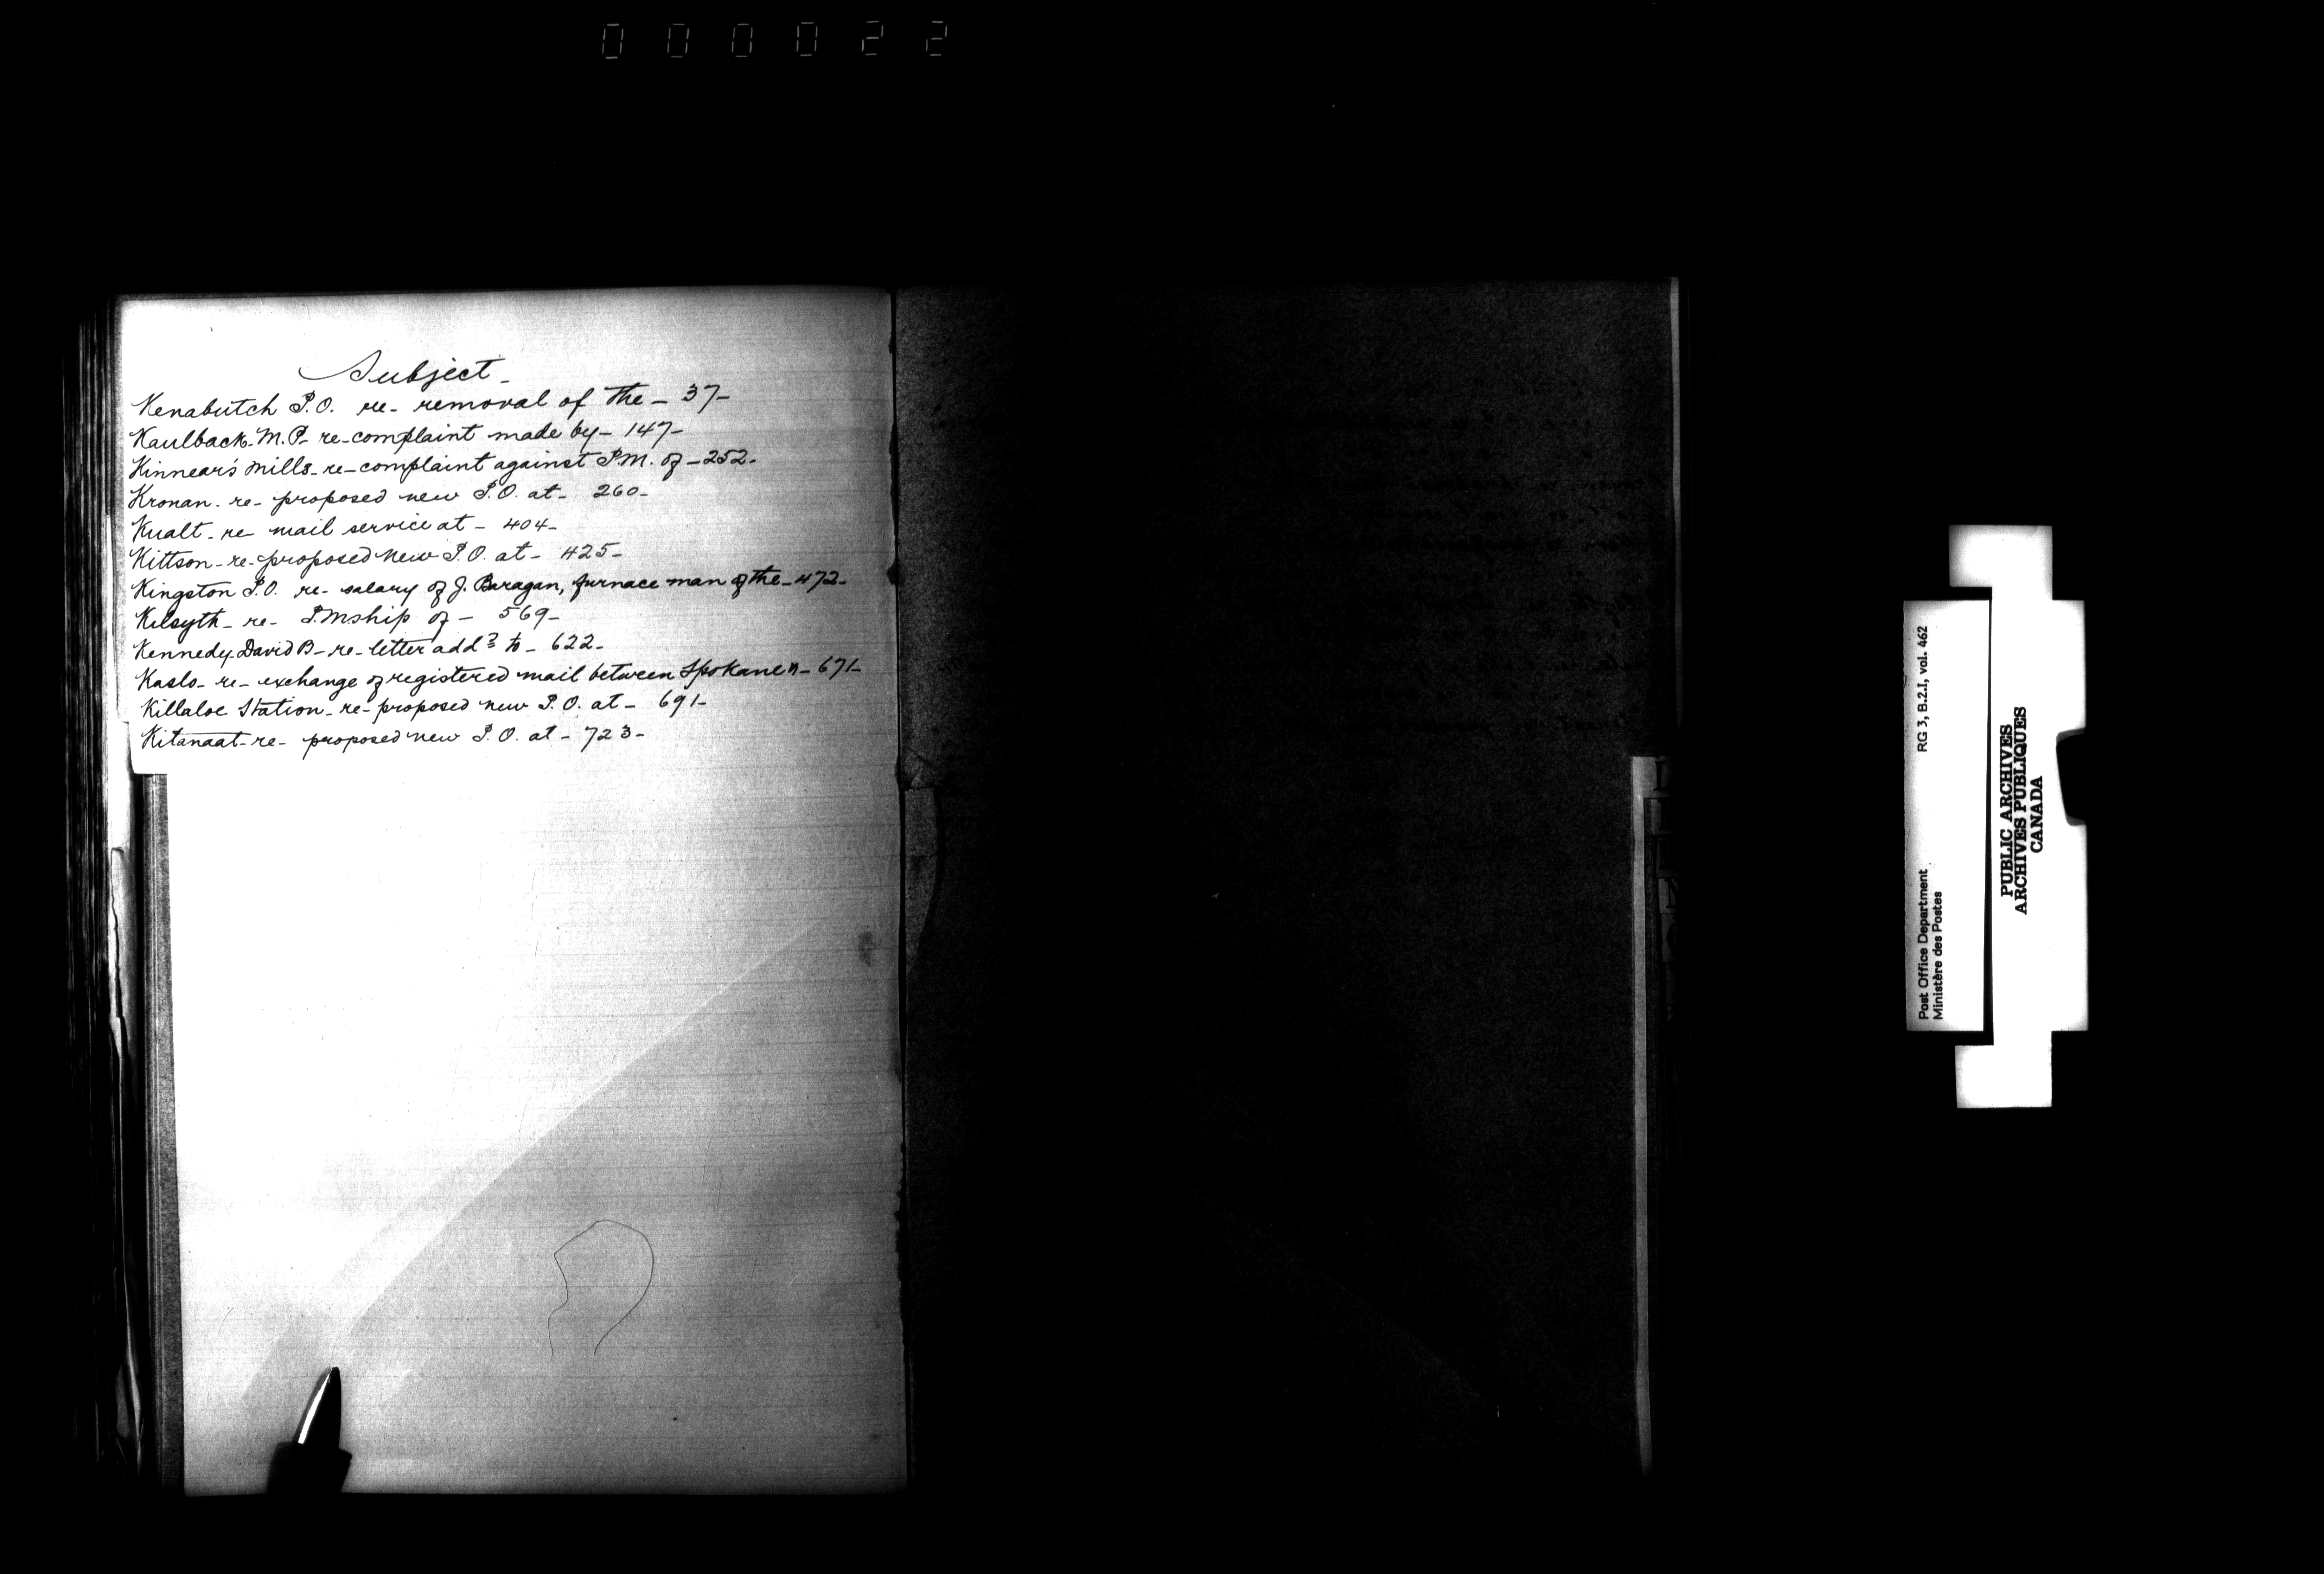 000022
Subject_
Kenabutch P.O. re- removal of the - 37-
Kaulback- M.P- re- complaint made by- 147-
Kinnear's Mills- re- complaint against P.M. of - 252-
Kronan- re- proposed new P.O. at- 260-
Kualt- re- mail service at - 404-
Kittson- re- proposed new P.O. at- 425-
Kingston P.O. re- salary of J. Baragan, furnace man of the- 472-
Kilsyth- re- P.Mship of - 569-
Kennedy- David B- re- letter add'd to- 622-
Kaslo- re- exchange of registered mail between Spokane - 671-
Killaloe Station- re- proposed new P.O. at- 691-
Kitanaat- re- proposed new P.O. at- 723-
Post Office Department RG 3, B.2.I, vol. 462
Ministère des Postes
PUBLIC ARCHIVES
ARCHIVES PUBLIQUES
CANADA